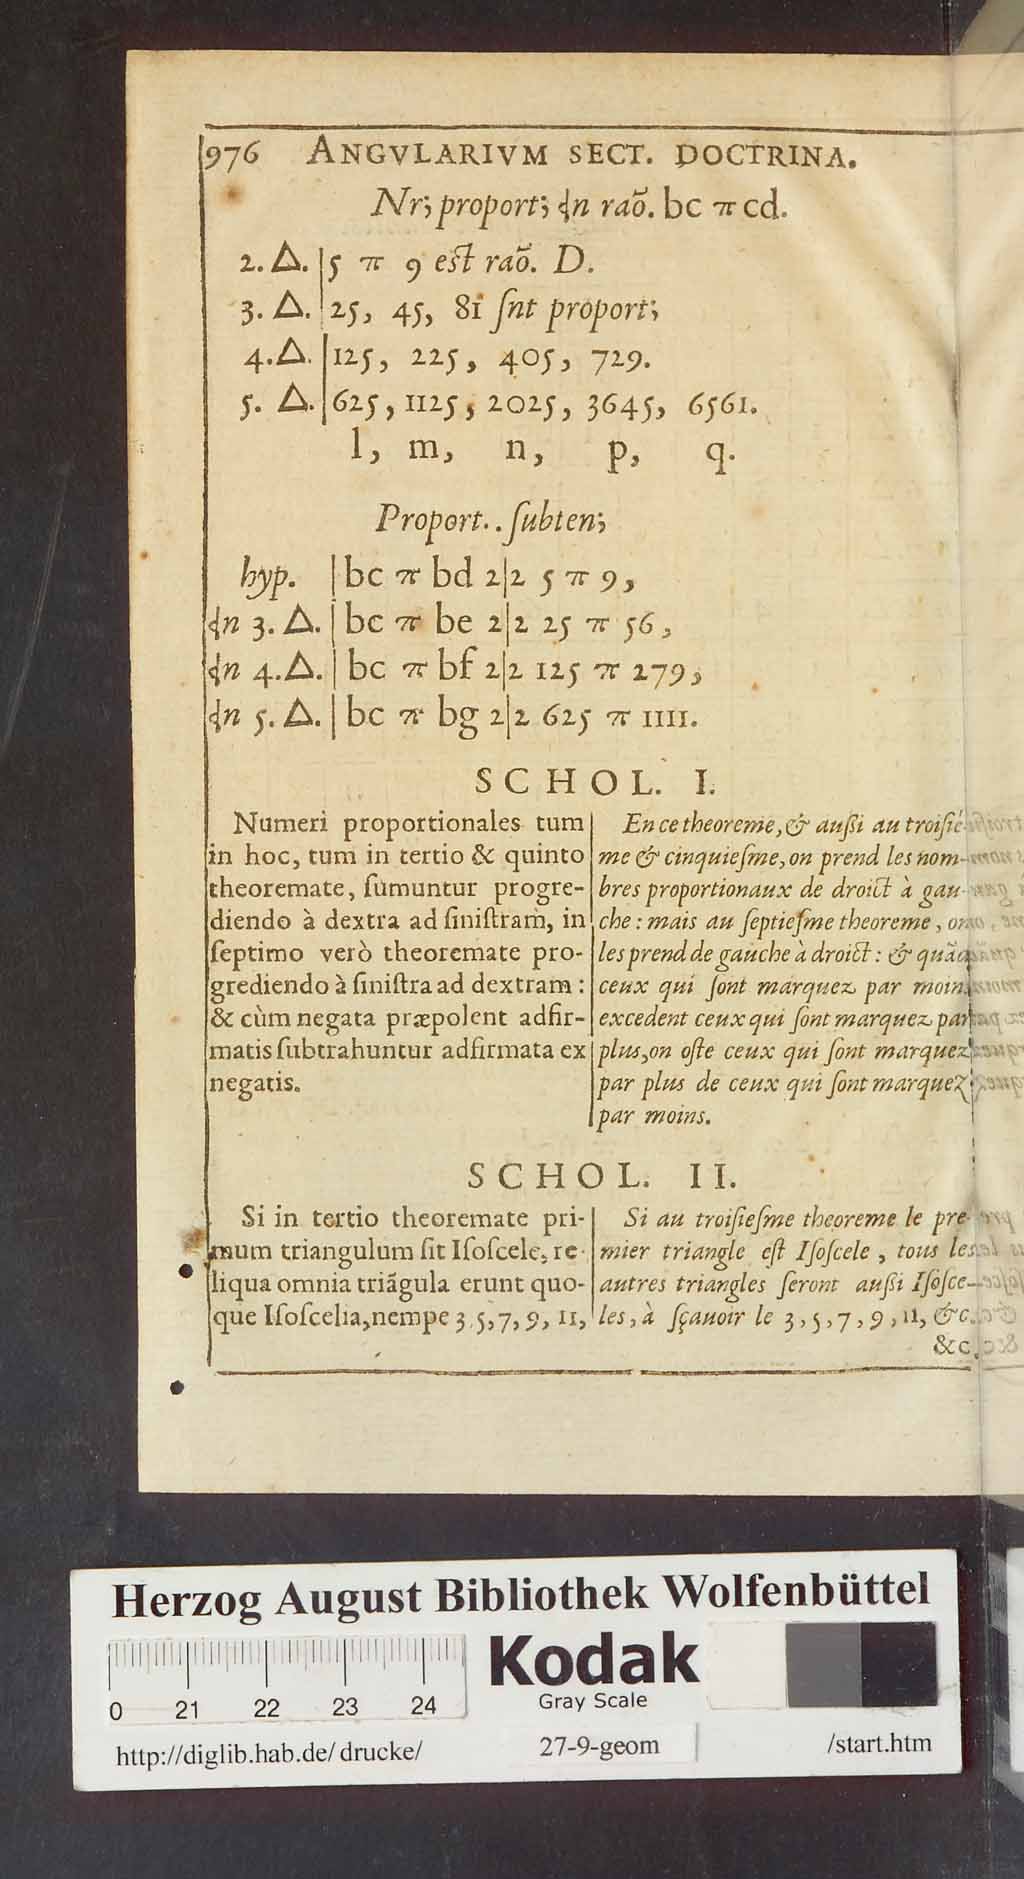 976 ANGVLARIVM SECT. DOCTRINA.
Nr; proport; ɖn raõ. bc π cd.
2. △. | 5 π 9 est raõ. D.
3. △. | 25, 45, 81 ſnt proport;
4. △. | 125, 225, 405, 729.
5. △. | 625, 1125, 2025, 3645, 6561.
l, m, n, p, q.
Proport. . ſubten;
hyp. | bc π bd 2|2 5 π 9,
ɖn 3. △. | bc π be 2|2 25 π 56,
ɖn 4. △. | bc π bf 2|2 125 π 279,
ɖn 5. △. | bc π bg 2|2 625 π 1111.
SCHOL. I.
Numeri proportionales tum
in hoc, tum in tertio & quinto
theoremate, ſumuntur progre-
diendo à dextra ad ſiniſtram, in
ſeptimo verò theoremate pro-
grediendo à ſiniſtra ad dextram :
& cùm negata præpolent adfir-
matis ſubtrahuntur adfirmata ex
negatis.
En ce theoreme, & außi au troiſié-
me & cinquieſme, on prend les nom-
bres proportionaux de droict à gau-
che : mais au ſeptieſme theoreme, on
les prend de gauche à droict : & quãd
ceux qui ſont marquez par moins
excedent ceux qui ſont marquez par
plus, on oſte ceux qui ſont marquez
par plus de ceux qui ſont marquez
par moins.
SCHOL. II.
Si in tertio theoremate pri-
mum triangulum ſit Iſoſcele, re-
liqua omnia triãgula erunt quo-
que Iſoſcelia, nempe 3, 5, 7, 9, 11,
Si au troiſieſme theoreme le pre-
mier triangle eſt Iſoſcele, tous les
autres triangles ſeront außi Iſoſce-
les, à ſçauoir le 3, 5, 7, 9, 11, &c.
&c.
Herzog August Bibliothek Wolfenbüttel
Kodak
Gray Scale
0 21 22 23 24
http://diglib.hab.de/drucke/ 27-9-geom /start.htm